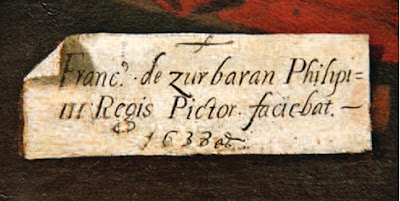 Franc.º de zurbaran Philipi=
IIII Regis Pictor. faciebat.—
1638